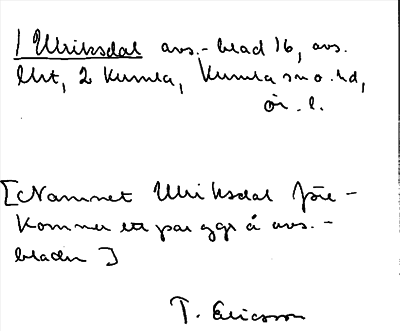 1 Ulriksdal avs.-blad 16, avs.
litt, 2 Kumla, Kumla sn o. hd,
ör. l.
[Namnet Ulriksdal före-
kommer ett par ggr å avs.-
bladen]
T. Ericsson